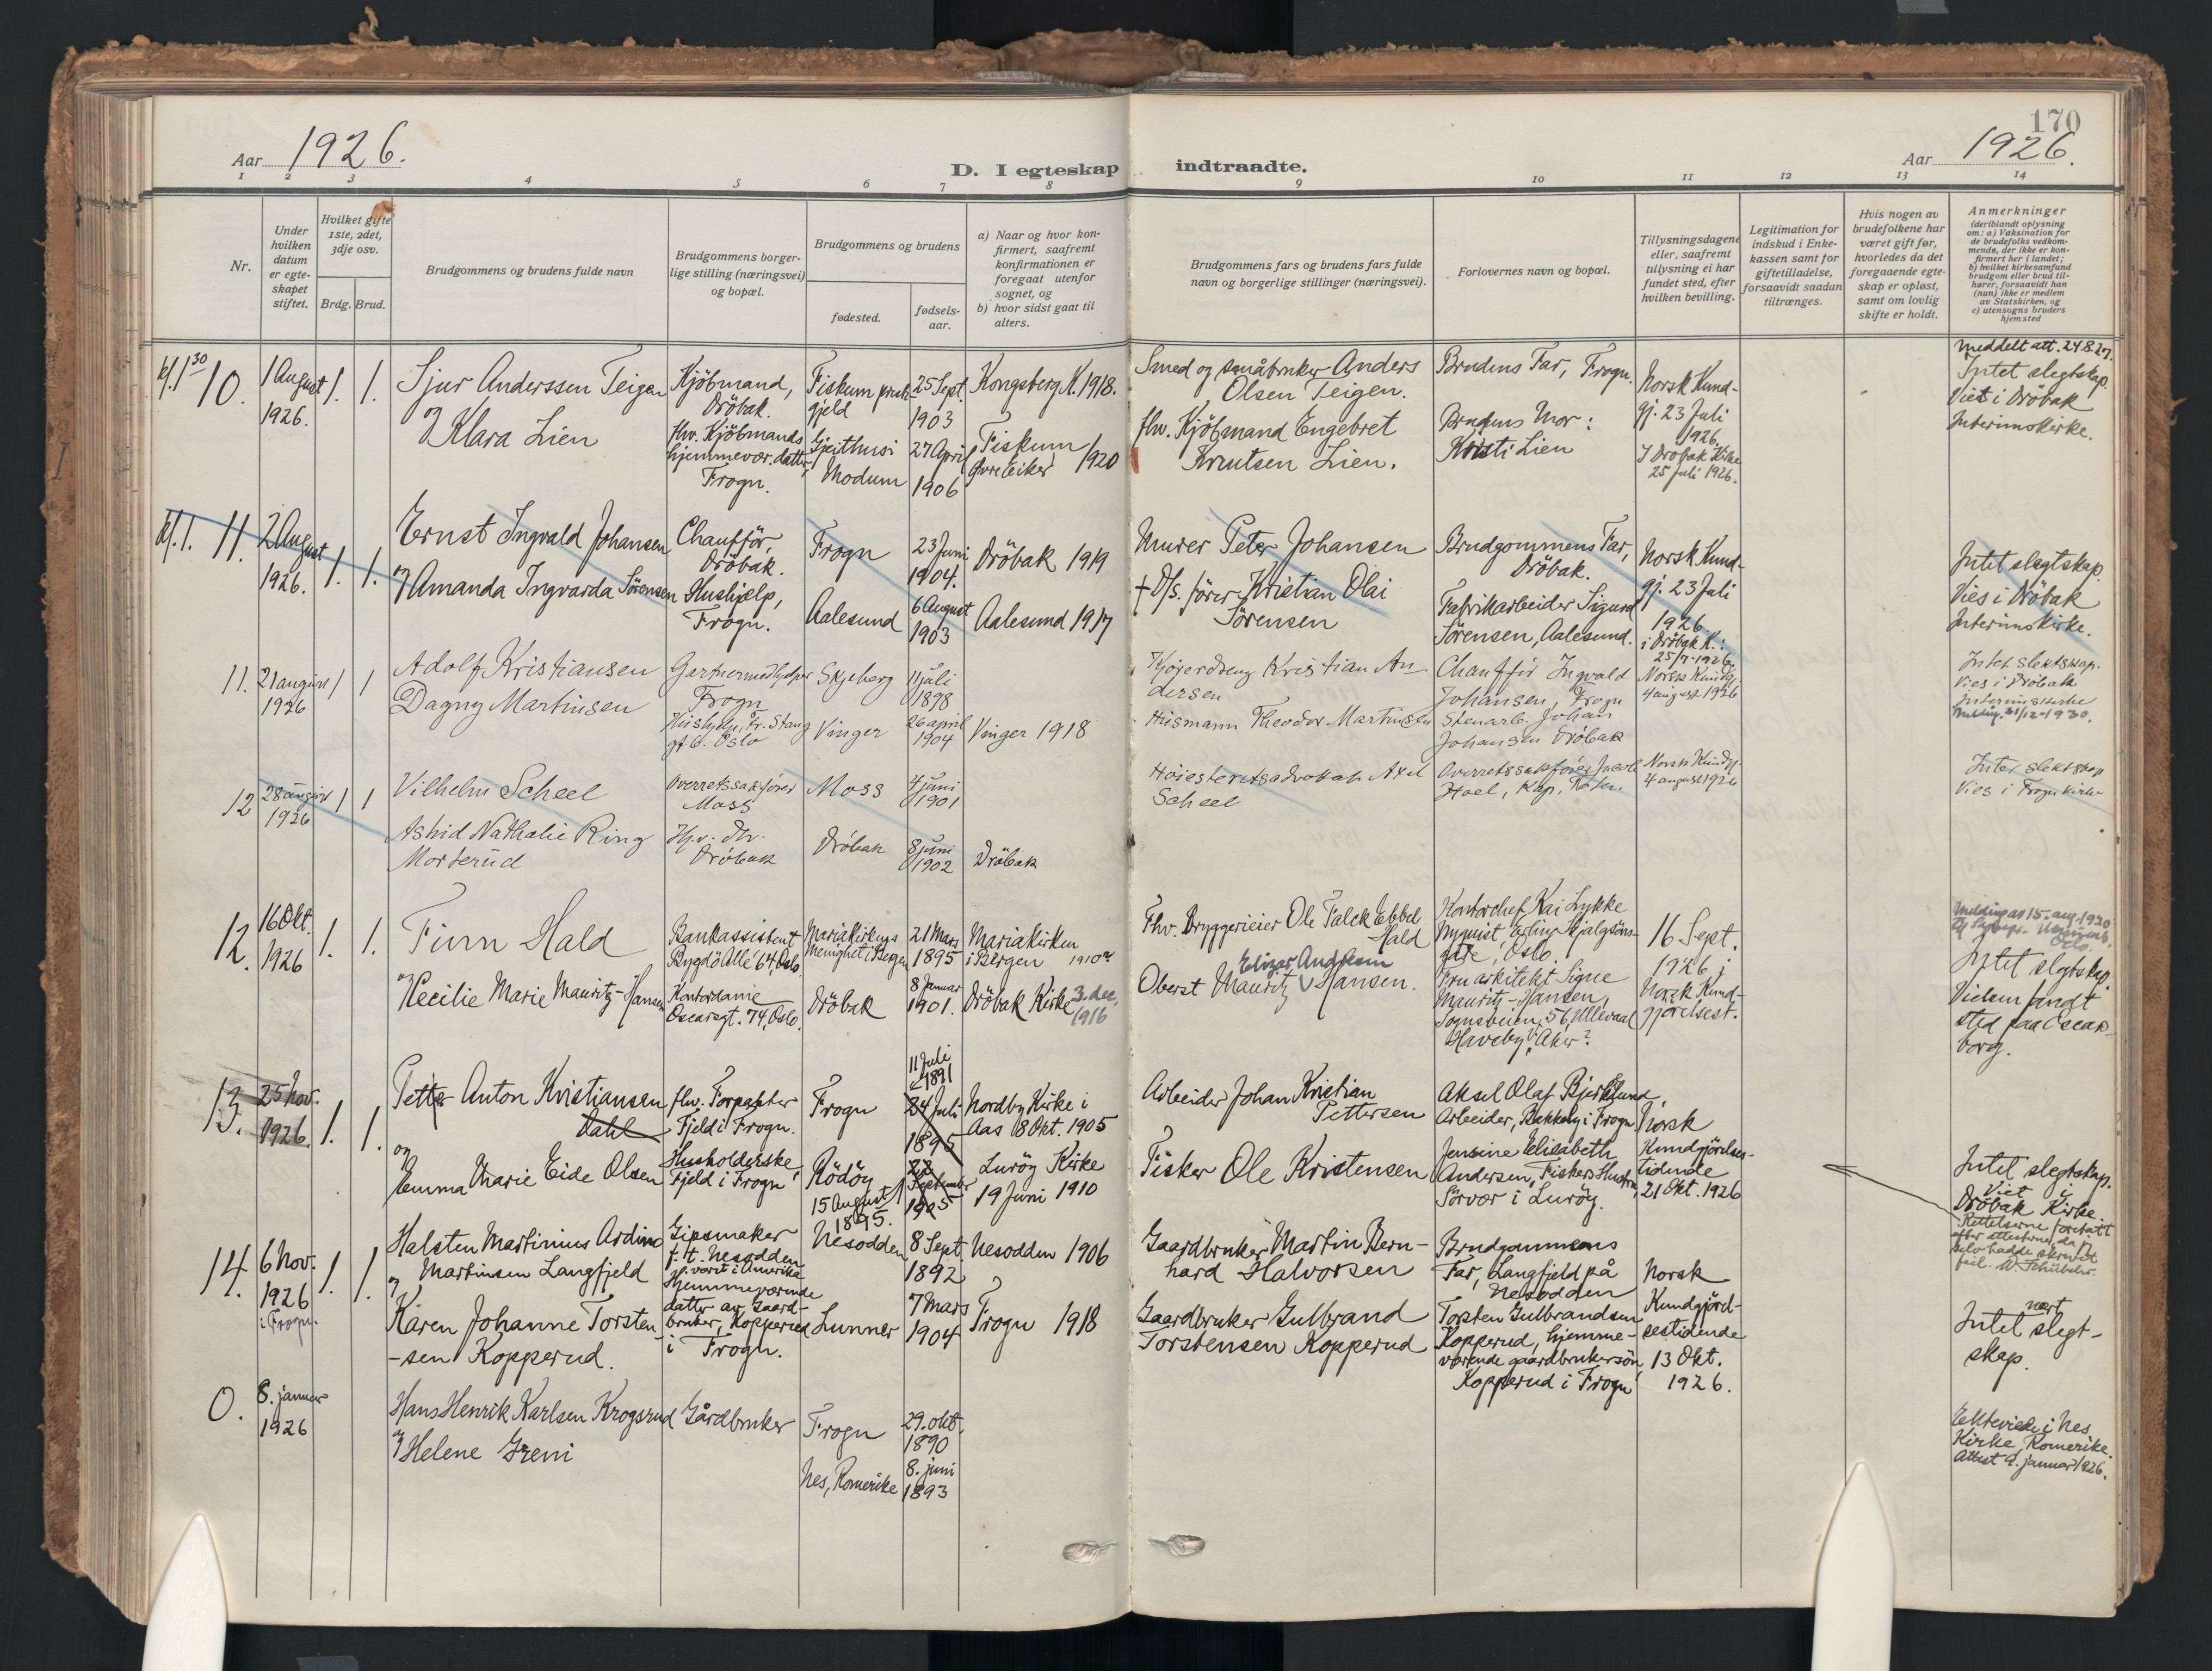 170
Aar 1926.
D. I egteskap indtraadte.
Aar 1926.
1 2 3 4 5 6 7 8 9 10 11 12 13 14
Nr.
Under hvilken datum er egteskapet stiftet.
Hvilket gifte 1ste, 2det, 3dje osv.
Brdg. Brud.
Brudgommens og brudens fulde navn
Brudgommens borgerlige stilling (næringsvei) og bopæl.
Brudgommens og brudens
fødested.
fødselsaar.
a) Naar og hvor konfirmert, saafremt konfirmationen er foregaat utenfor sognet, og
b) hvor sidst gaat til alters.
Brudgommens fars og brudens fars fulde navn og borgerlige stillinger (næringsvei).
Forlovernes navn og bopæl.
Tillysningsdagene eller, saafremt tillysning ei har fundet sted, efter hvilken bevilling.
Legitimation for indskud i Enkekassen samt for giftetilladelse, forsaavidt saadan tiltrænges.
Hvis nogen av brudefolkene har været gift før, hvorledes da det foregaaende egteskap er opløst, samt om lovlig skifte er holdt.
Anmerkninger
(deriblandt oplysning om: a) Vaksination for de brudefolks vedkommende, der ikke er konfirmert her i landet; b) hvilket kirkesamfund brudgom eller brud tilhører, forsaavidt han (hun) ikke er medlem av Statskirken, og c) utensogns bruders hjemsted
kl. 1 30 10. 1 August 1926. 1. 1.
Sjur Anderssen Teigen
og Klara Lien
Kjöbmand, Dröbak.
fhv. Kjöbmands hjemmevær. datter, Frogn.
Fiskum
gjeld
Modum
25 Sept. 1903
27 April 1906
Kongsberg K. 1918.
Fiskum Övre Eiker 1920
Smed og småbruker Anders Olsen Teigen.
fhv. Kjöbmand Engebret Knutsen Lien.
Brudens Far, Frogn.
Brudens Mor: Kristi Lien
Norsk Kundgj. 23 Juli 1926.
I Dröbak Kirke 25 Juli 1926.
Meddelt att. 24.8.27.
Intet slegtskap.
Viet i Dröbak Interimskirke.
kl. 1. 11. 2 August 1926. 1. 1.
Ernst Ingvald Johansen
og Amanda Ingvarda Sörensen
Chaufför, Dröbak.
Hushjelp, Frogn.
Frogn
Aalesund
23 Juni 1904.
6 August 1903
Dröbak 1919
Aalesund 1917
Murer Peter Johansen
† D/s. förer Kristian Olai Sörensen
Brudgommens Far, Dröbak.
Fabrikarbeider Sigurd Sörensen, Aalesund.
Norsk Kundgj. 23 Juli 1926.
i Dröbak K.: 25/7-1926.
Intet slegtskap.
Vies i Dröbak Interimskirke.
11. 21 august 1926 1 1
Adolf Kristiansen
Dagny Martinsen
Gartnermedhjelper Frogn
Hushjelp, Fr. Stang gt 6. Oslo
Skjeberg
Vinger
11 juli 1898
26 april 1904
Vinger 1918
Kristian Andersen
Husmann Theodor Martinsen
Chauffør Ingvald Johansen, Frogn
Stenarb. Johan Johansen Drøbak
Norsk Kundg. 4 august 1926
Intet slektskap.
Vies i Drøbak Interimskirke
Melding 31/12-1930.
12 28 august 1926 1 1
Vilhelm Scheel
Astrid Nathalie Ring Morterud
Overretssakfører Moss
Hjv. dtr. Drøbak
Moss
Drøbak
4 juni 1901
8 juni 1902
Drøbak
Høiesteretsadvokat Axel Scheel
Overretssakfører
Norsk Kundgj. 4 august 1926
Intet slektskap
Vies i Frogn kirke
12. 16 Okt. 1926 1. 1.
Finn Hald
og Cecilie Marie Mauritz-Hansen
Bankassistent Bygdö Allé 64 Oslo
Kontordame Oscarsgt. 74, Oslo.
Mariakirkens Menighet i Bergen
Dröbak
21 Mars 1895
8 Januar 1901.
Mariakirken i Bergen 1910
Dröbak Kirke 3. dec. 1916
Fhv. Bryggerieier Ole Falck Ebbel Hald
Oberst Mauritz Hansen.
Kontorchef Kai Lykke Nyquist, Erling Skjalgsöns gate, Oslo.
Fru arkitekt Signe Mauritz-Hansen, Sognsveien 56, Ullevaal Haveby, V. Aker.
16 Sept. 1926 i Norsk Kundgjörelsest.
Intet slegtskap.
Vielsen fandt sted paa Oscarsborg.
13. 25 Nov. 1926. 1. 1.
Petter Anton Kristiansen Dahl
og Emma Marie Eide Olsen
fhv. Forpakter Fjeld i Frogn.
Husholderske Fjeld i Frogn
Frogn
Rödöy
11 Juli 1891
24 Juli 1895
22 September 1905
15 August 1895.
Nordby Kirke i Aas 8 Okt. 1905
Luröy Kirke 19 Juni 1910
Arbeider Johan Kristian Pettersen
Fisker Ole Kristensen
Aksel Olaf Bjerkelund, Arbeider, Bakkely i Frogn
Jensine Elisabeth Andersen, Fiskers Hustru, Sörvær i Luröy.
Norsk Kundgjörelsestidende 21 Okt. 1926
Intet slegtskap.
Viet Dröbak Kirke.
Rettelserne foretatt efter attesterne, da selv hadde skrevet feil.
14. 6 Nov. 1926 i Frogn. 1. 1.
Halsten Martinius Ardino Martinsen Langfjeld
og Karen Johanne Torstensen Kopperud.
Gipsmaker f. t. Nesodden, været i Amerika
Hjemmeværende datter av Gaardbruker, Kopperud i Frogn.
Nesodden
Lunner
8 Sept. 1892
7 Mars 1904
Nesodden 1906
Frogn 1918
Gaardbruker Martin Bernhard Halvorsen
Gaardbruker Gulbrand Torstensen Kopperud
Brudgommens Far, Langfjeld på Nesodden
Torsten Gulbrandsen Kopperud, hjemmeværende gaardbrukersön, Kopperud i Frogn
Norsk Kundgjörelsestidende 13 Okt. 1926.
Intet nært slegtskap.
0. 8. januar 1926
Hans Henrik Karlsen Krogsrud
og Helene Greni
Gårdbruker
Frogn
Nes, Romerike
29. okt. 1890
8. juni 1893
Ektevies i Nes Kirke, Romerike.
Attest 9. januar 1926.